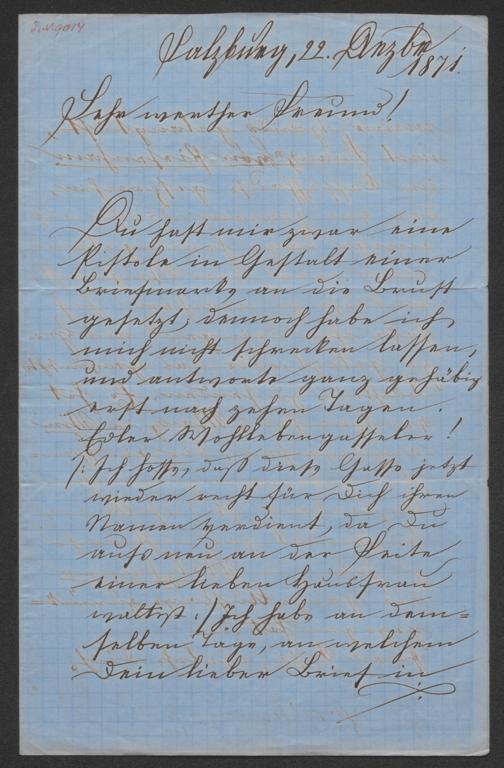 I.N. 9014
Salzburg, 22. Dezbr
1871.
Sehr werther Freund!
Du hast mir zwar eine
Pistole in Gestalt einer
Briefmarke an die Brust
gesetzt, dennoch habe ich
mich nicht schrecken lassen,
und antworte ganz gehäbig
erst nach zehen Tagen.
Edler Wohllebengasseler!
/: Ich hoffe, daß diese Gasse jetzt
wieder recht für Dich ihren
Namen verdient, da Du
aufs neu an der Seite
einer lieben Hausfrau
waltest :/ Ich habe an dem=
selben Tage, an welchem
Dein lieber Brief in